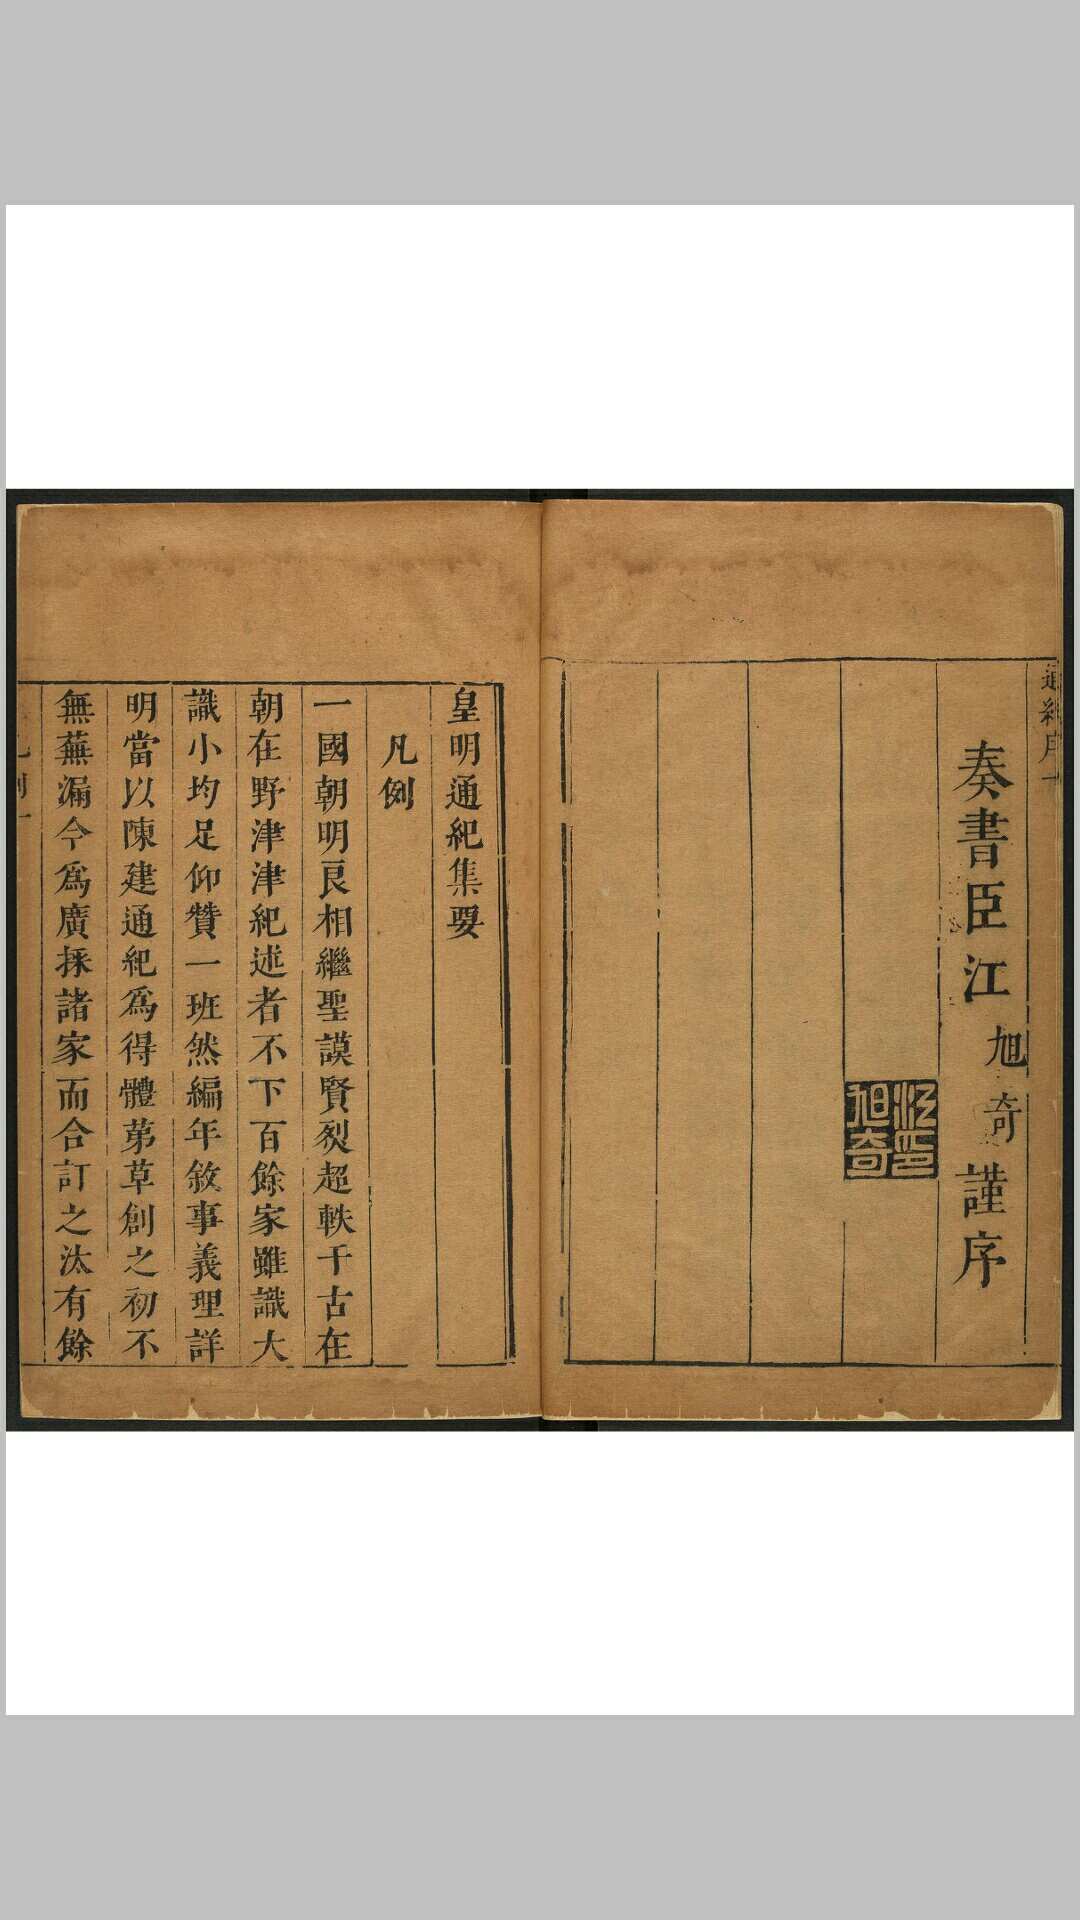 通紀序
奏書臣江旭奇謹序
江旭奇印
皇明通紀集要
凡例
一國朝明良相繼聖謨賢烈超軼千古在
朝在野津津紀述者不下百餘家雖識大
識小均足仰贊一班然編年敘事義理詳
明當以陳建通紀爲得體苐草創之初不
無蕪漏今爲廣採諸家而合訂之汰有餘
凡例一